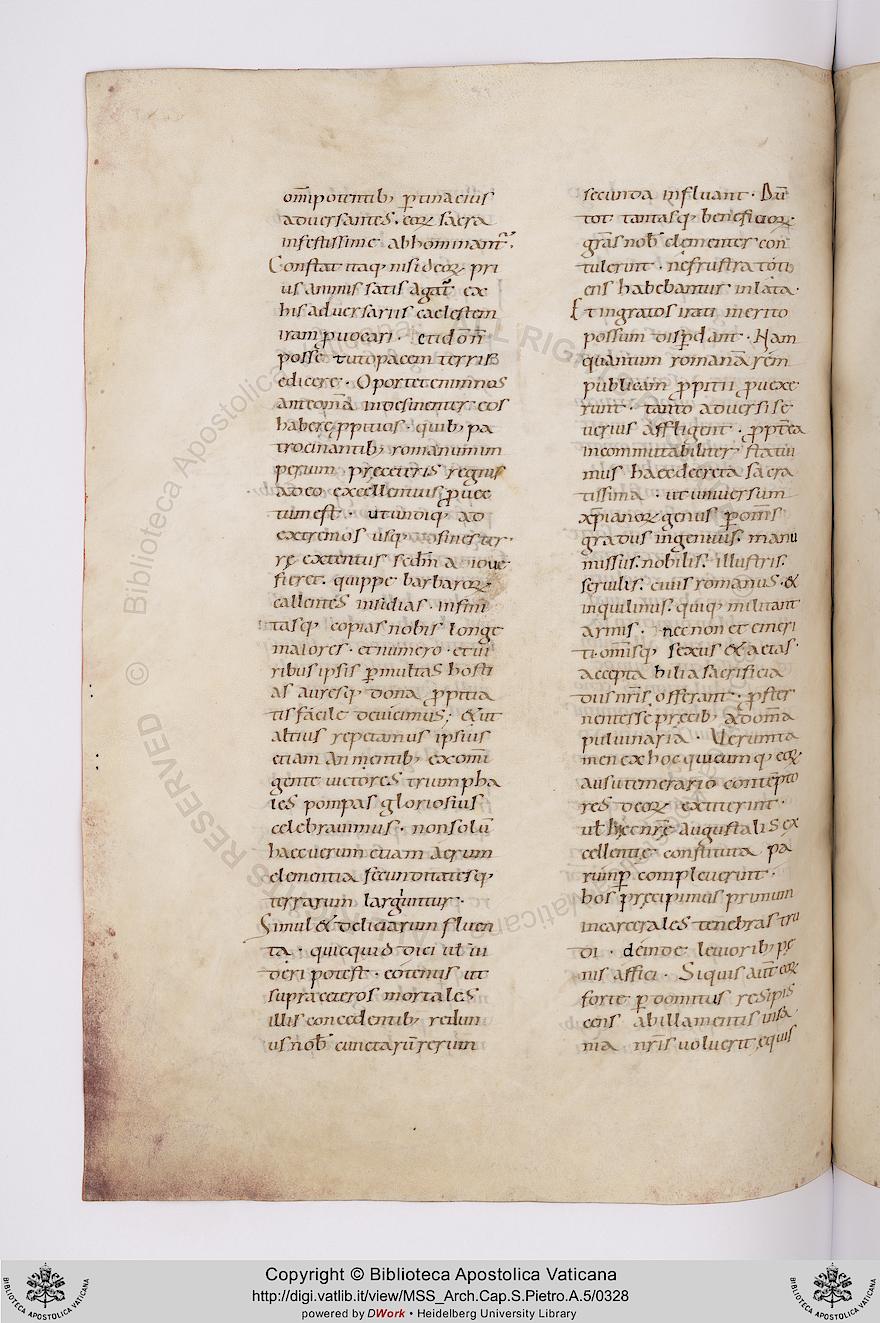 om̄ipotentib; ꝑtinacius
aduersantes. eoꝝ sacra
infestissime abhominant᷑.
Constat itaq; nisi deoꝝ pri
us animis satis agat᷑. ex
his aduersariis caelestem
iram ꝓuocari. et id
posse tuto pacem terris
edicere. Oportet enim nos
indesinenter eos
habere ꝓpitios. quib; pa
trocinantib; romanum im
perium. pręceteris regnis
adeo excellentius ꝓuec
tum est. ut undiq; ad
extremos usq; ad fines ter
rę extentus sedm̄ a ioue
fieret. quippe barbaroꝝ
callentes insidias. infini
tasq; copias nobis longe
maiores. et numero. et ui
ribus ipsis ꝑmultas hosti
as auresq; dona ꝓpitia
tis facile deuicimus; & ut
altius repetamus ipsius
etiam animentib; ex omi
gente uictores triumpha
les pompas gloriosius
celebrauimus. non solū
haec uerum etiam aerum
clementia secunditatesq;
terrarum larguntur.
Simul & deliciarum fluen
ta. quicquid dici ut ui
deri potest. eotenus ut
supra ceteros mortales
illis concedentib; redun
us nob̄ cunctarū rerum
secunda influant. Dū
tot tantasq; beneficioꝝ
grās nob̄ clementer con
tulerint. ne frustra toti
ens habebantur inlata.
Et ingratos irati merito
possum disꝑdant. Nam
quantum romanā rēm
publicam ꝓpitii ꝓuexe
runt. tanto aduersi se
uerius affligent. ꝓpt̄ea
incommutabiliter statui
mus haec decreta sacra
tissima. ut uniuersum
xp̄ianoꝝ genus ꝑ om̄s
gradus ingenuus. manu
missus. nobilis. illustris.
seruilis. ciuis romanus. &
inquilinus. quiq; militant
armis. nec non et emeri
ti. om̄isq; sexus & aetas.
acceptabilia sacrificia
diis nr̄is offerant. ꝓster
nentes se pręcib; ad om̄a
puluinaria. Uerumta
men ex hoc quicumq; eoꝝ
ausu temerario contēpto
res deoꝝ extiterint.
ut hęc nrē augustalis ex
cellentię constituta pa
rum ꝑ compleuerint.
hos pręcipimus primum
in carcerales tenebras tru
di. deinde leuiorib; pę
nis affici. Siquis aut̄ eoꝝ
forte ꝑdomitus resipis
cens ab illamentis insa
nia nr̄is uoluerit equis
Copyright © Biblioteca Apostolica Vaticana
http://digi.vatlib.it/view/MSS_Arch.Cap.S.Pietro.A.5/0328
powered by DWork • Heidelberg University Library